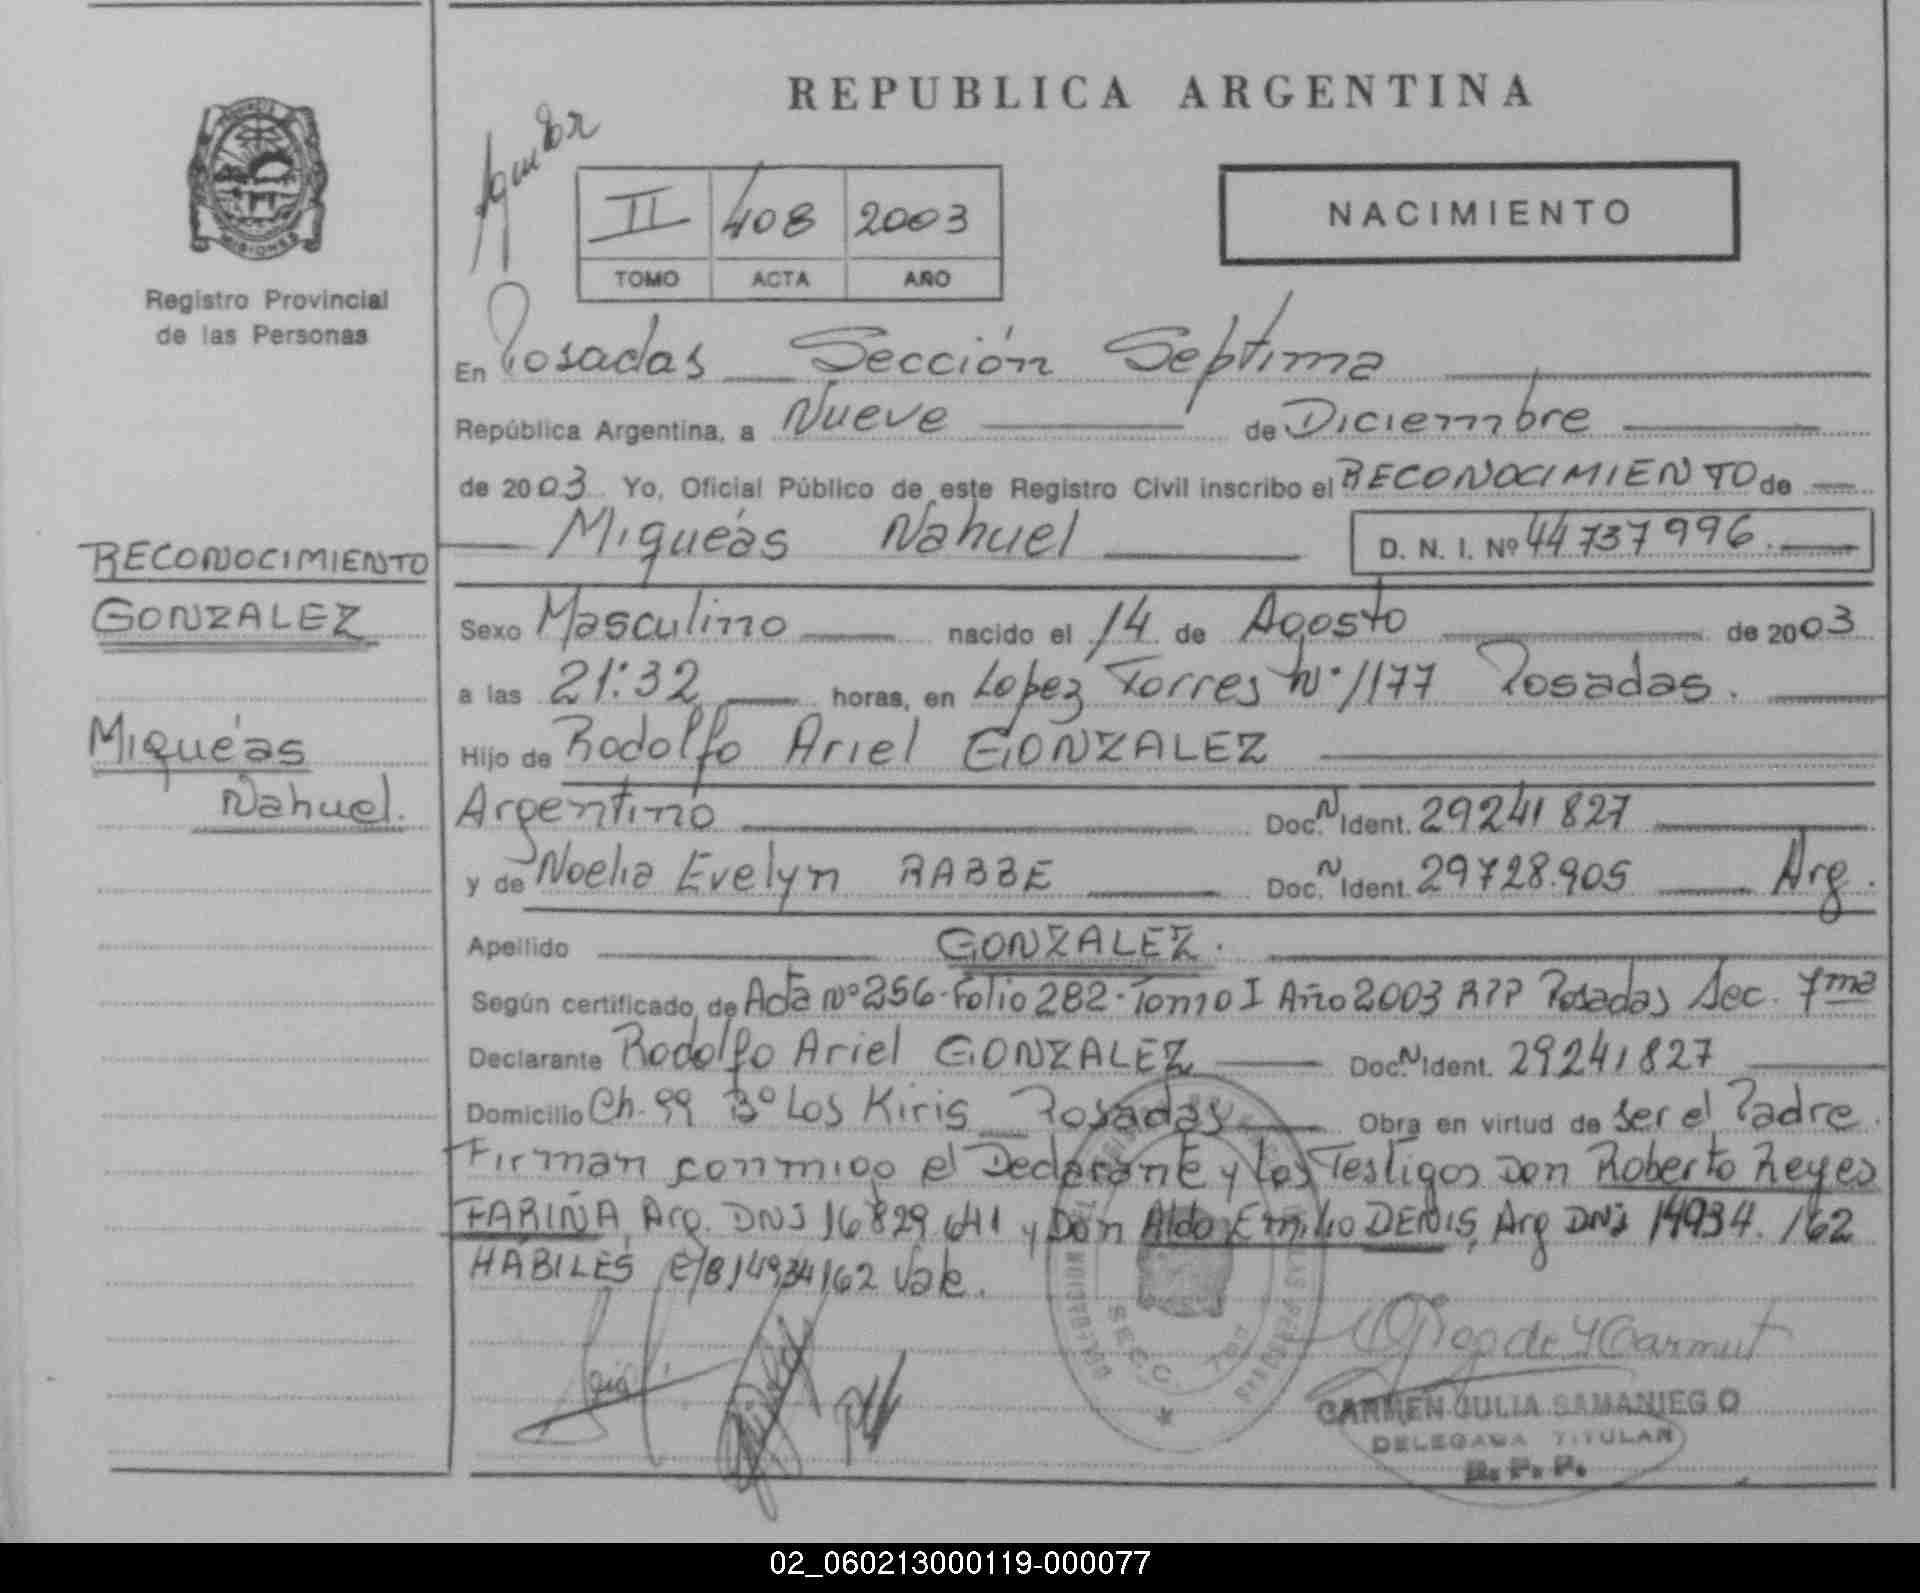 REPUBLICA ARGENTINA
PROVINCIA
MISIONES
Registro Provincial
de las Personas
II 408 2003
TOMO ACTA AÑO
NACIMIENTO
En Posadas Sección Septima
República Argentina, a Nueve de Diciembre
de 2003 Yo, Oficial Público de este Registro Civil inscribo el RECONOCIMIENTO de
Miqueás Nahuel D. N. I. Nº 44737996.
RECONOCIMIENTO
GONZALEZ
Miqueás
Nahuel.
Sexo Masculino nacido el 14 de Agosto de 2003
a las 21:32 horas, en Lopez Torres Nº 1177 Posadas.
Hijo de Rodolfo Ariel GONZALEZ
Argentino Doc. N Ident. 29241827
y de Noelia Evelyn RABBE Doc. N Ident. 29728.905 Arg.
Apellido GONZALEZ.
Según certificado de Acta Nº 256-Folio 282-Tomo I Año 2003 RPP Posadas Sec. 7ma
Declarante Rodolfo Ariel GONZALEZ Doc. N Ident. 29241827
Domicilio Ch. 99 Bº Los Kiris Posadas Obra en virtud de ser el Padre.
Firman conmigo el Declarante y los Testigos Don Roberto Reyes
FARIÑA, Arg. DNI 16829641 y Don Aldo Emilio DENIS, Arg DNI 14934.162
HÁBILES E/B 14934162 Vale.
SECC.
CARMEN JULIA SAMANIEGO
DELEGADA TITULAR
R. P. P.
02_060213000119-000077